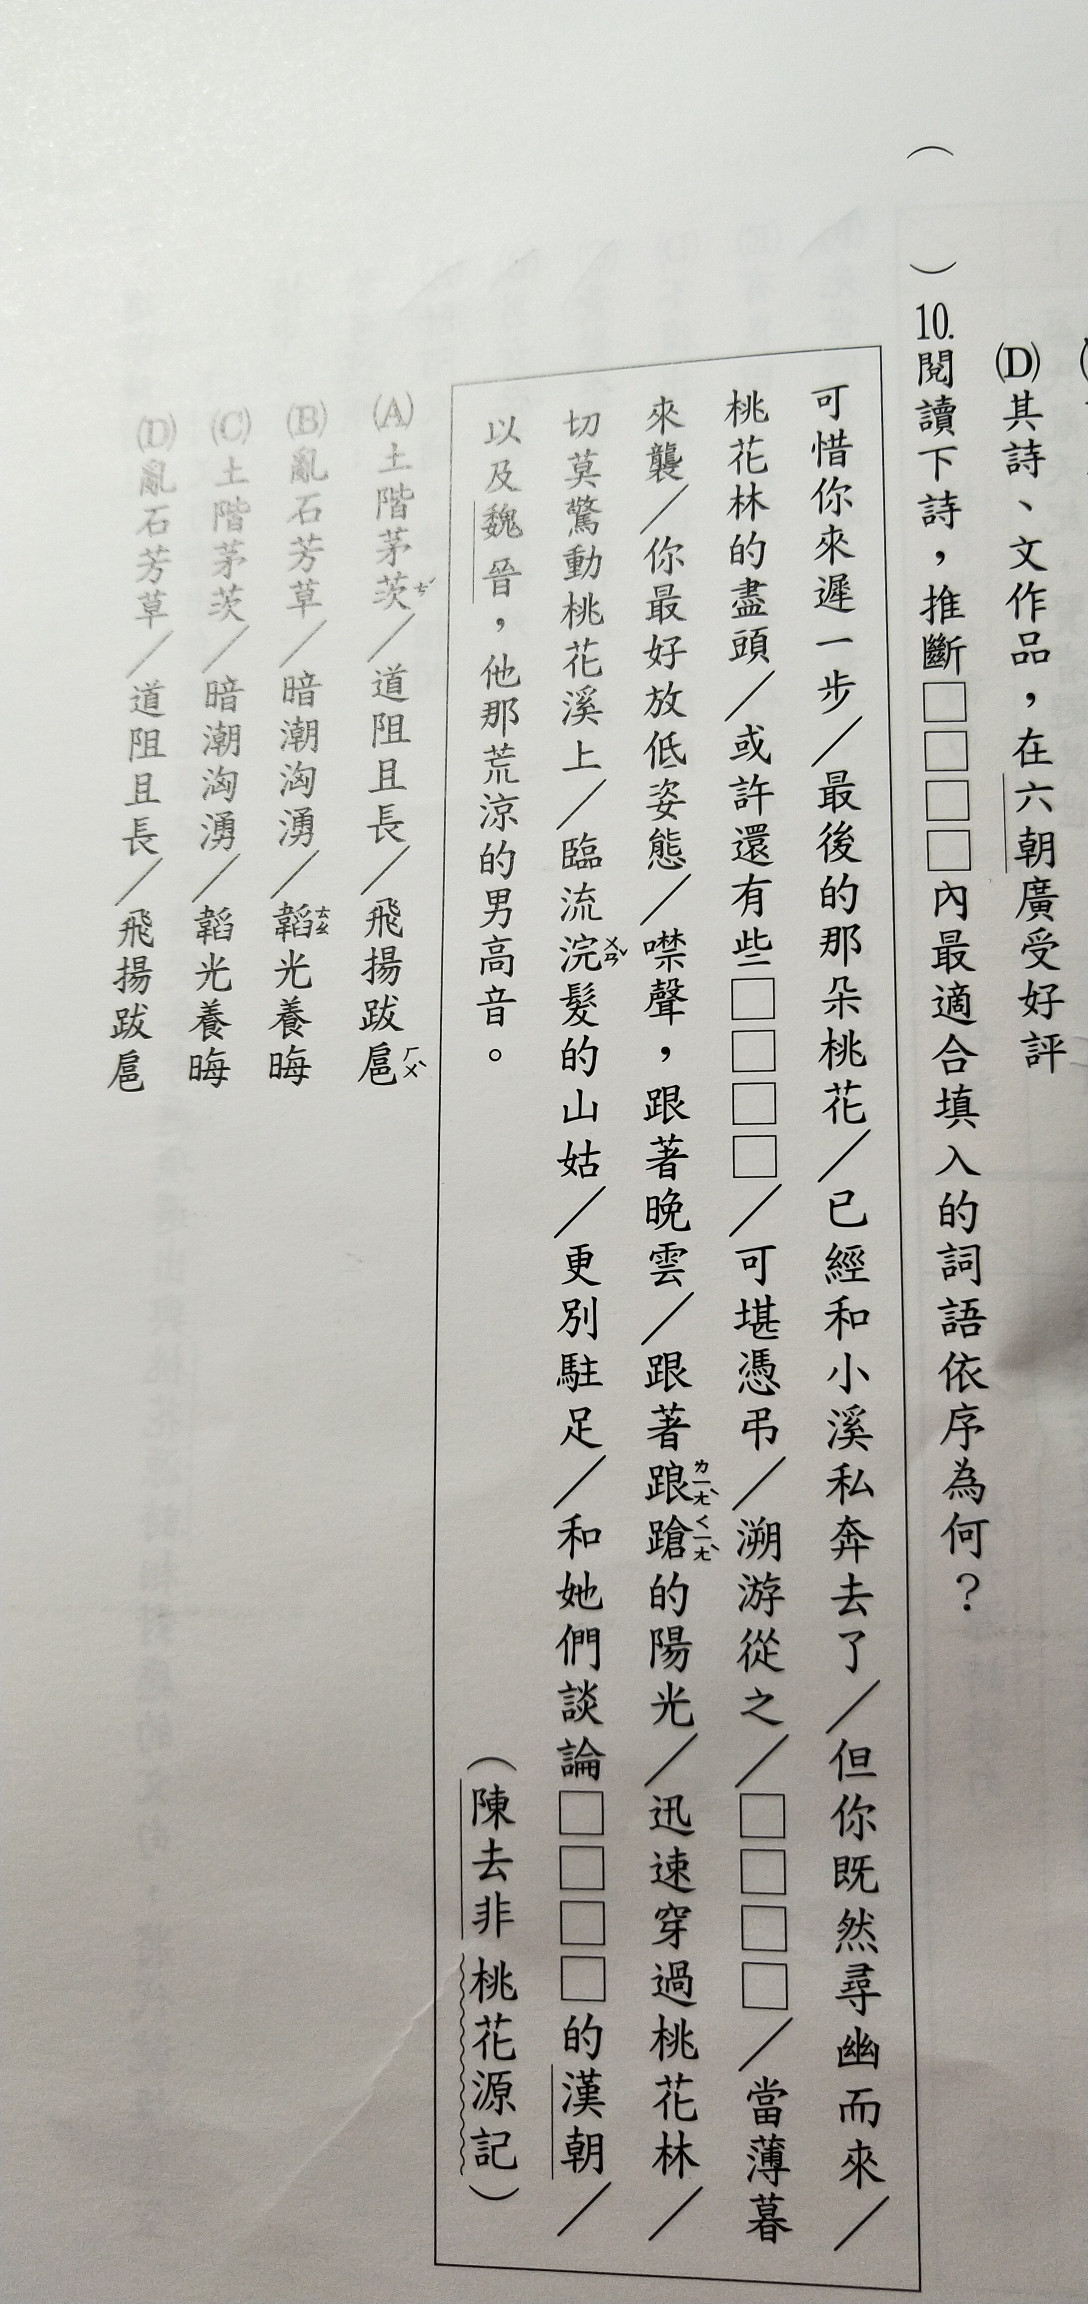 (D)其詩、文作品，在六朝廣受好評
（　）10.閱讀下詩，推斷□□□□內最適合填入的詞語依序為何？
可惜你來遲一步／最後的那朵桃花／已經和小溪私奔去了／但你既然尋幽而來／
桃花林的盡頭／或許還有些□□□□／可堪憑弔／溯游從之／□□□□／當薄暮
來襲／你最好放低姿態／噤聲，跟著晚雲／跟著踉ㄌㄧㄤˋ蹌ㄑㄧㄤˋ的陽光／迅速穿過桃花林／
切莫驚動桃花溪上／臨流浣ㄨㄢˇ髮的山姑／更別駐足／和她們談論□□□□的漢朝／
以及魏晉，他那荒涼的男高音。
（陳去非 桃花源記）
(A)土階茅茨ㄘˊ／道阻且長／飛揚跋扈ㄏㄨˋ
(B)亂石芳草／暗潮洶湧／韜ㄊㄠ光養晦
(C)土階茅茨／暗潮洶湧／韜光養晦
(D)亂石芳草／道阻且長／飛揚跋扈